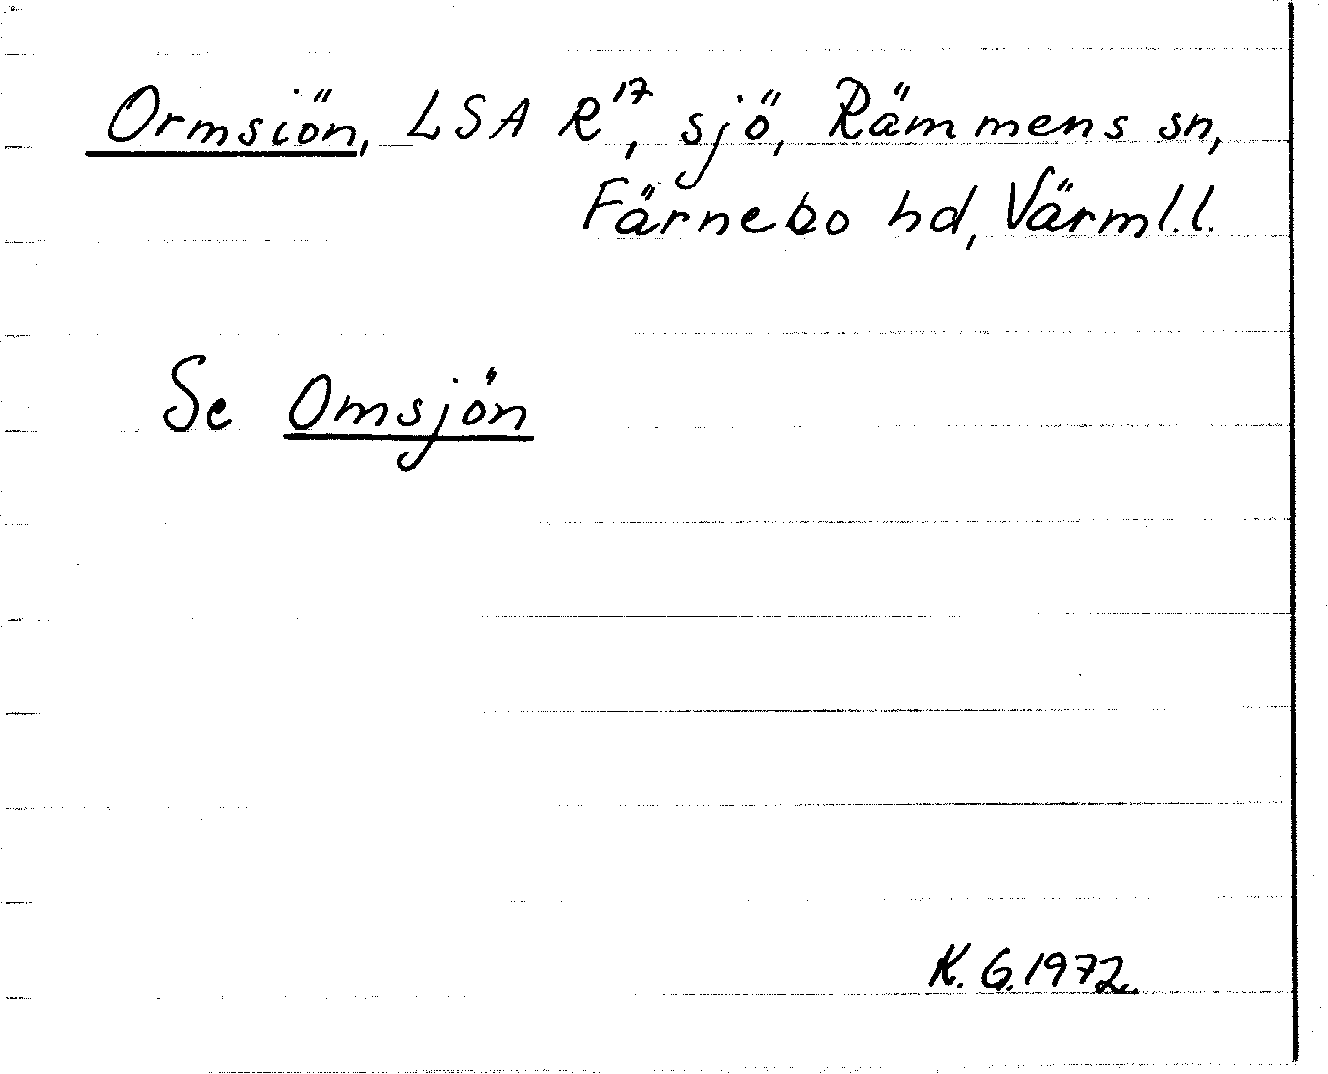 Ormsiön, LSA R¹⁷, sjö, Rämmens sn,
Färnebo hd, Värml.l.
Se Omsjön
K.G.1972.